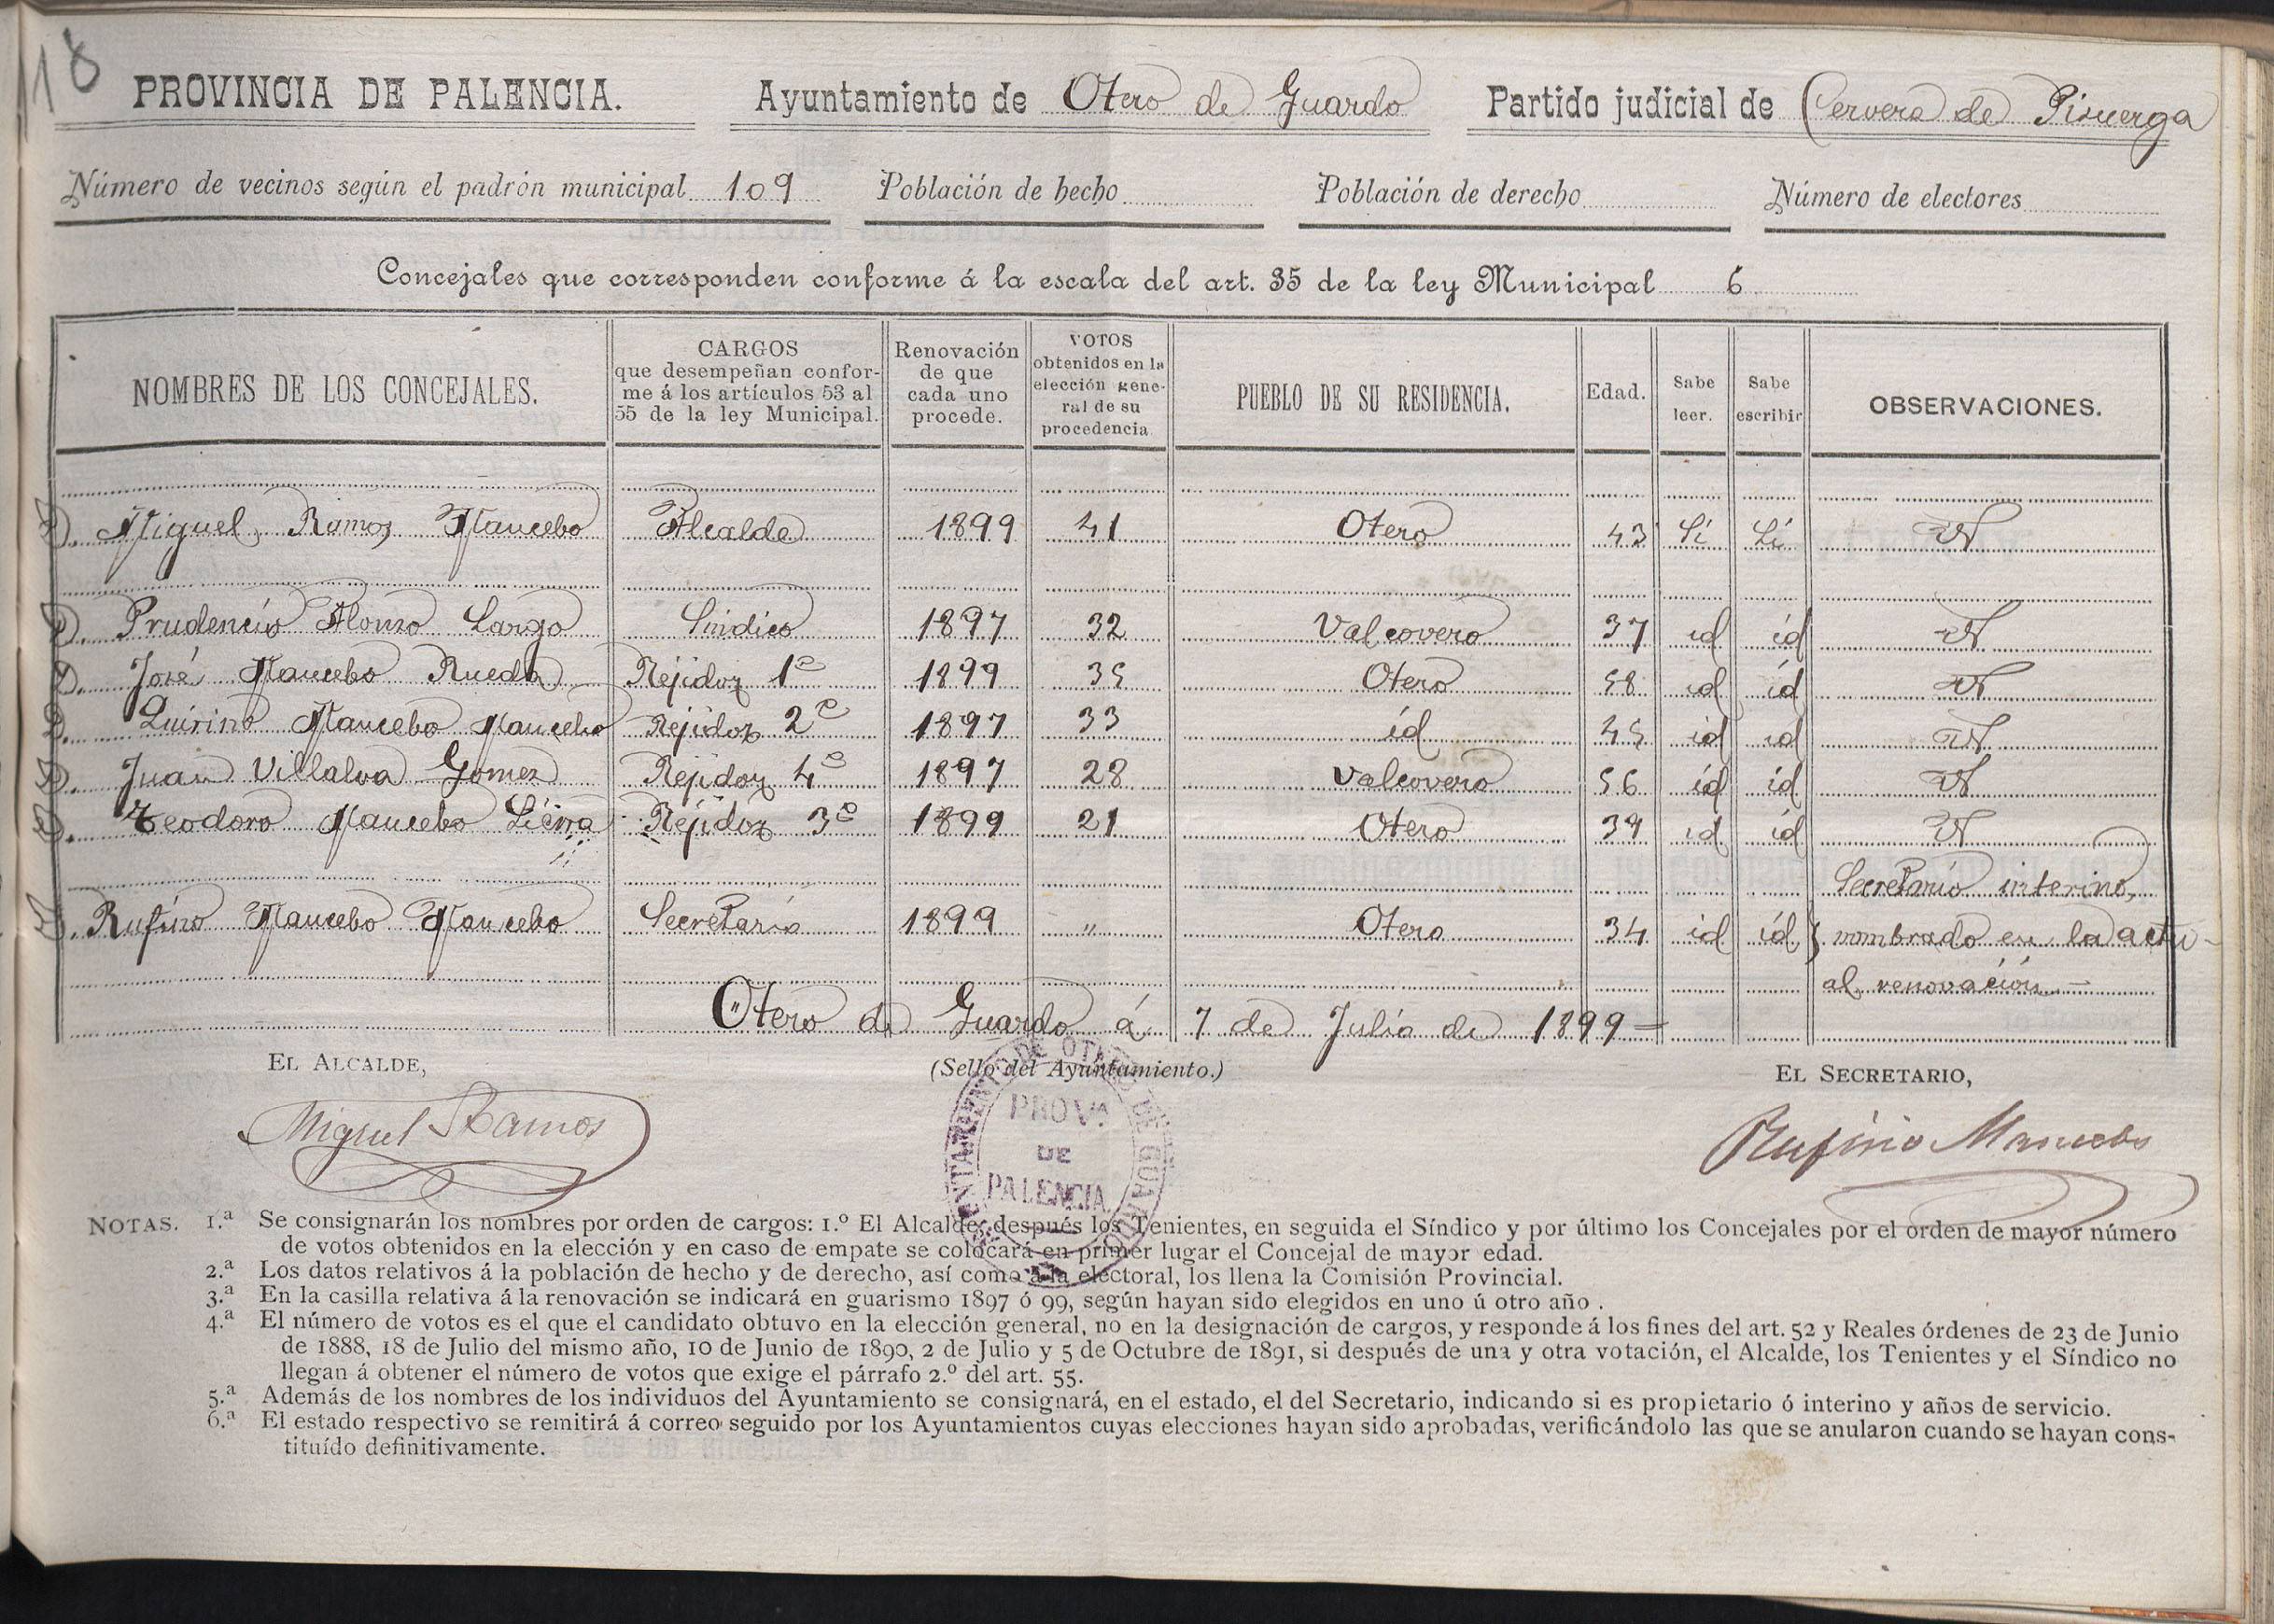 18
PROVINCIA DE PALENCIA. Ayuntamiento de Otero de Guardo Partido judicial de Cervera de Pisuerga
Número de vecinos según el padrón municipal 109 Población de hecho Población de derecho Número de electores
Concejales que corresponden conforme á la escala del art. 35 de la ley Municipal 6
NOMBRES DE LOS CONCEJALES.
CARGOS
que desempeñan confor-
me á los artículos 53 al
55 de la ley Municipal.
Renovación
de que
cada uno
procede.
VOTOS
obtenidos en la
elección gene-
ral de su
procedencia
PUEBLO DE SU RESIDENCIA.
Edad.
Sabe
leer.
Sabe
escribir
OBSERVACIONES.
D. Miguel Ramos Mancebo Alcalde 1899 41 Otero 43 Sí Sí N
D. Prudencio Alonso Largo Sindico 1897 32 Valcovero 37 id id N
D. José Mancebo Rueda Rejidor 1º 1899 35 Otero 58 id id N
D. Quirino Mancebo Mancebo Rejidor 2º 1897 33 id 45 id id N
D. Juan Villalva Gomez Rejidor 4º 1897 28 Valcovero 56 id id N
D. Teodoro Mancebo Rejidor 3º 1899 21 Otero 39 id id N
D. Rufino Mancebo Mancebo Secretario 1899 " Otero 34 id id
Secretario interino,
nombrado en la actu-
al renovación
Otero de Guardo á 7 de Julio de 1899
EL ALCALDE, (Sello del Ayuntamiento.) EL SECRETARIO,
Miguel Ramos
AYUNTAMIENTO DE OTERO DE GUARDO
PROV.ª
DE
PALENCIA
Rufino Mancebo
NOTAS. 1.ª Se consignarán los nombres por orden de cargos: 1.º El Alcalde; después los Tenientes, en seguida el Síndico y por último los Concejales por el orden de mayor número
de votos obtenidos en la elección y en caso de empate se colocará en primer lugar el Concejal de mayor edad.
2.ª Los datos relativos á la población de hecho y de derecho, así como á la electoral, los llena la Comisión Provincial.
3.ª En la casilla relativa á la renovación se indicará en guarismo 1897 ó 99, según hayan sido elegidos en uno ú otro año .
4.ª El número de votos es el que el candidato obtuvo en la elección general, no en la designación de cargos, y responde á los fines del art. 52 y Reales órdenes de 23 de Junio
de 1888, 18 de Julio del mismo año, 10 de Junio de 1890, 2 de Julio y 5 de Octubre de 1891, si después de una y otra votación, el Alcalde, los Tenientes y el Síndico no
llegan á obtener el número de votos que exige el párrafo 2.º del art. 55.
5.ª Además de los nombres de los individuos del Ayuntamiento se consignará, en el estado, el del Secretario, indicando si es propietario ó interino y años de servicio.
6.ª El estado respectivo se remitirá á correo seguido por los Ayuntamientos cuyas elecciones hayan sido aprobadas, verificándolo las que se anularon cuando se hayan cons-
tituído definitivamente.